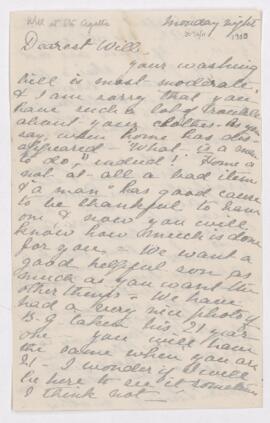 Will at Ste Agathe
Monday night
1910
Dearest Will -
your washing
bill is most moderate,
& I am sorry that you
have such a lot of trouble
about your clothes - As you
say, when home has dis-
appeared - "What is a man
to do," indeed! Home is
not at all a bad item
& "a man" has good cause
to be thankful to have
one & now you will
know how much is done
for you - We want a
good helpful son as
much as you want the
other things - We have
had a very nice photo of
B. G taken his 21 year
one you will have
the same when you are
21 - I wonder if I will
be here to see it sometimes
I think not -